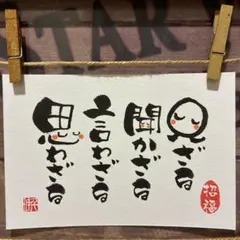 見ざる
聞かざる
言わざる
思わざる
招福
TAR